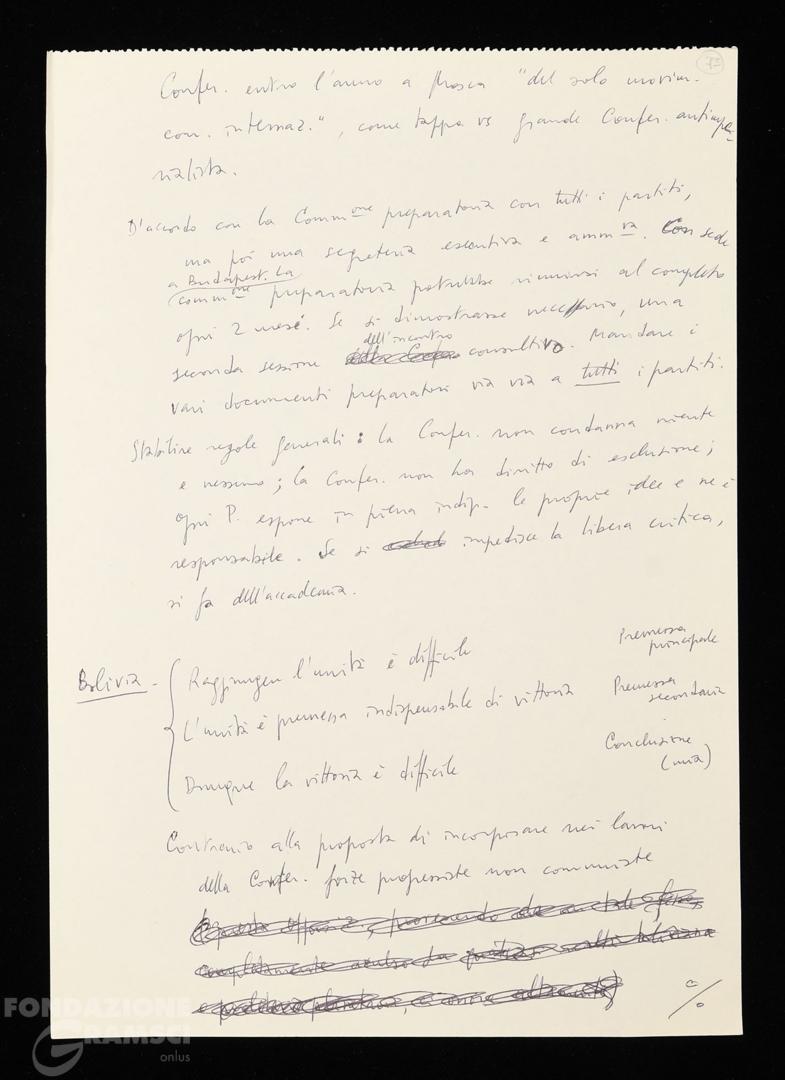 73
Confer. entro l'anno a Mosca "del solo movim.
com. internaz.", come tappa vs grande Confer. antimpe-
rialista.
D'accordo con la Comm.one preparatoria con tutti i partiti,
ma poi una segreteria esecutiva e amm.va. Con sede
a Budapest. La
comm.one preparatoria potrebbe riunirsi al completo
ogni 2 mesi. Se si dimostrasse necessario, una
dell'incontro
seconda sessione consultivo. Mandare i
vari documenti preparatori via via a tutti i partiti.
Stabilire regole generali: la Confer. non condanna niente
e nessuno; la Confer. non ha diritto di esclusione;
ogni P. espone in piena indip. le proprie idee e ne è
responsabile. Se si impedisce la libera critica,
si fa dell'accademia.
Bolivia - Raggiungere l'unità è difficile Premessa principale
L'unità è premessa indispensabile di vittoria Premessa secondaria
Dunque la vittoria è difficile Conclusione (mia)
Contrario alla proposta di incorporare nei lavori
della Confer. forze progressiste non comuniste
%
FONDAZIONE
GRAMSCI
onlus